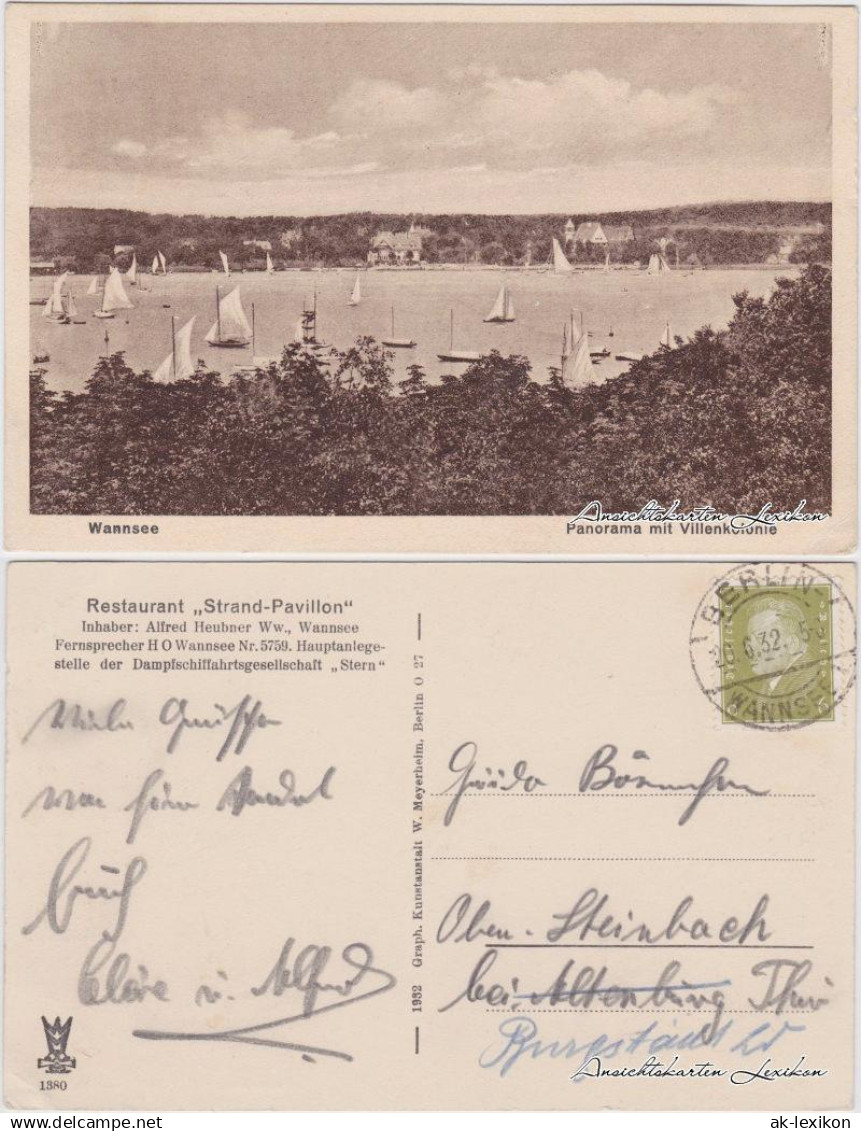 Wannsee
Panorama mit Villenkolonie
Ansichtskarten Lexikon
Restaurant „Strand-Pavillon“
Inhaber: Alfred Heubner Ww., Wannsee
Fernsprecher H O Wannsee Nr. 5759. Hauptanlege-
stelle der Dampfschiffahrtsgesellschaft „Stern“
Viele
Euch
Cläre u. Alfred
1380
1932 Graph. Kunstanstalt W. Meyerheim, Berlin O 27
BERLIN-
6.32.
WANNSEE
Guido
Ober-Steinbach
bei Altenburg Thür
Burgstädt
Ansichtskarten Lexikon
www.delcampe.net
ak-lexikon